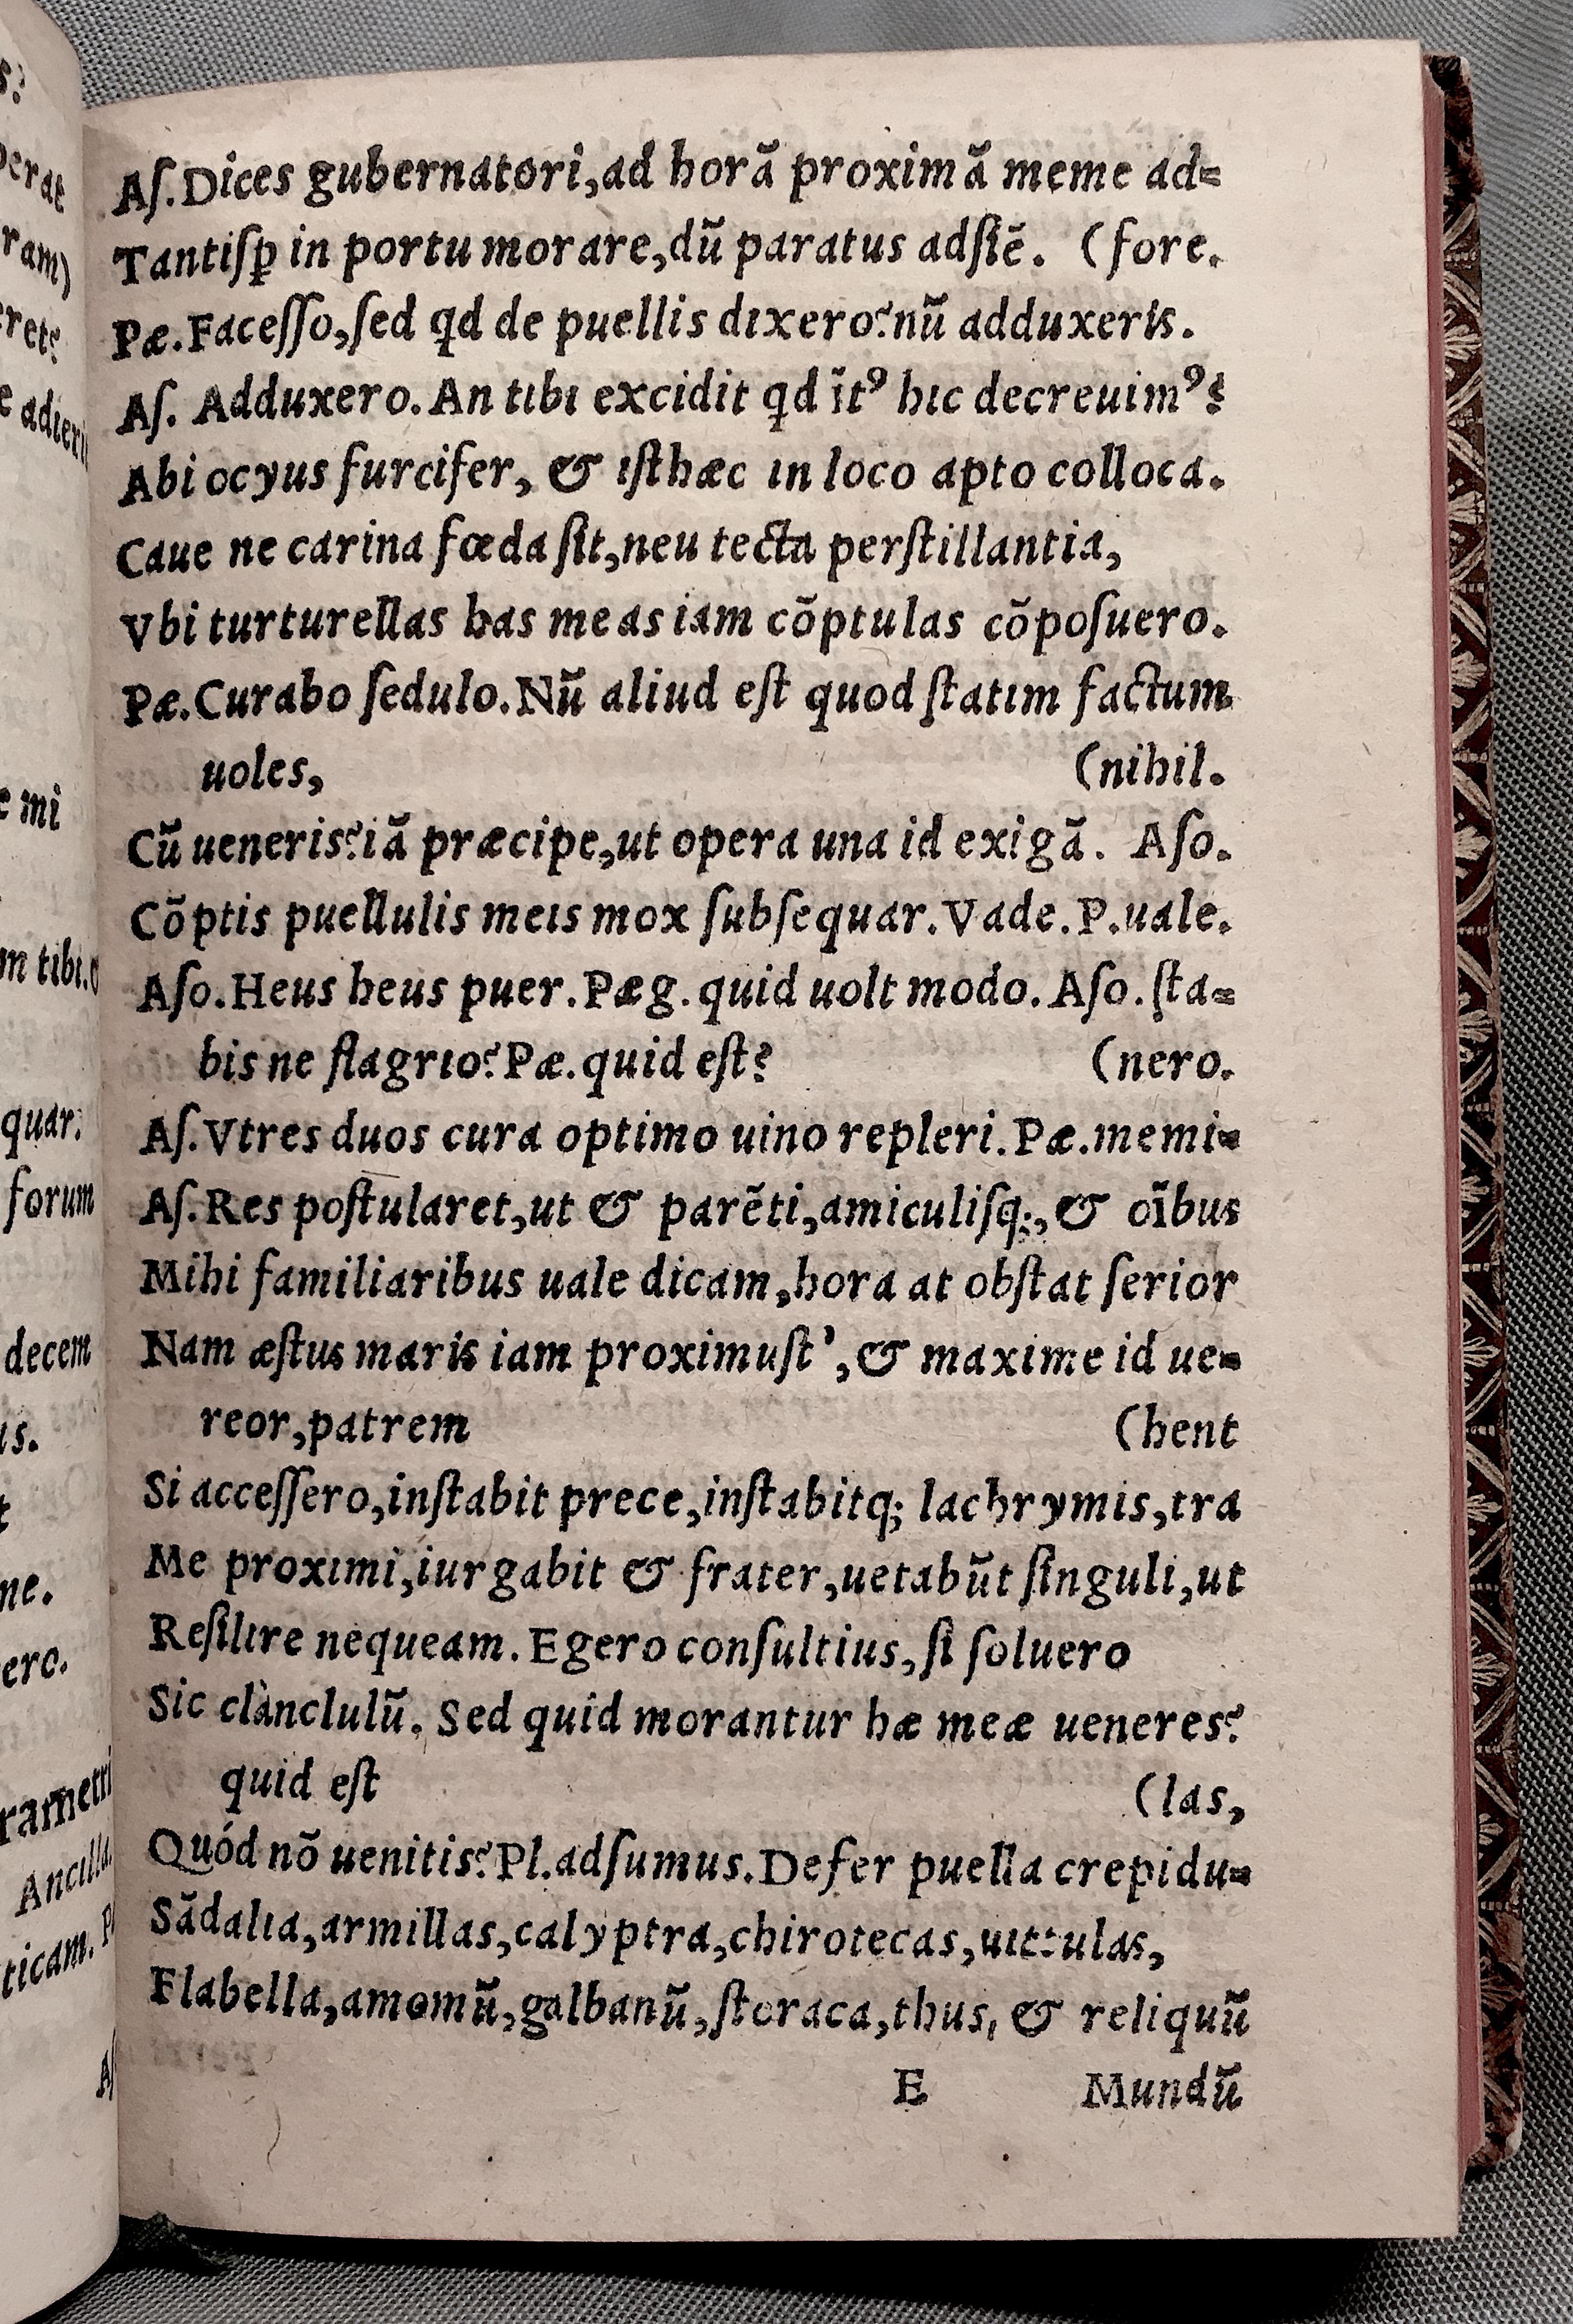 Aſ.Dices gubernatori,ad horā proximā meme ad=
Tantiſꝑ in portu morare,dū paratus adſiē. (fore.
Pæ.Faceſſo,ſed qd de puellis dixero?nū adduxeris.
Aſ. Adduxero.An tibi excidit qd ītꝰ hic decreuimꝰ?
Abi ocyus furcifer, & iſthæc in loco apto colloca.
Caue ne carina fœda ſit,neu tecta perſtillantia,
Vbi turturellas has meas iam cōptulas cōpoſuero.
Pæ.Curabo ſedulo.Nū aliud eſt quod ſtatim factum
uoles, (nihil.
Cū ueneris?iā præcipe,ut opera una id exigā. Aſo.
Cōptis puellulis meis mox ſubſequar.Vade.P.uale.
Aſo.Heus heus puer.Pæg.quid uolt modo.Aſo.ſta=
bis ne flagrio?Pæ.quid eſt? (nero.
Aſ.Vtres duos cura optimo uino repleri.Pæ.memi=
Aſ.Res poſtularet,ut & parēti,amiculiſq;,& oībus
Mihi familiaribus uale dicam,hora at obſtat ſerior
Nam æſtus maris iam proximuſt',& maxime id ue=
reor,patrem (hent
Si acceſſero,inſtabit prece,inſtabitq; lachrymis,tra
Me proximi,iurgabit & frater,uetabūt ſinguli,ut
Reſilire nequeam.Egero conſultius,ſi ſoluero
Sic clànclulū. Sed quid morantur hæ meæ ueneres?
quid eſt (las,
Quód nō uenitis?Pl.adſumus.Defer puella crepidu=
Sādalia,armillas,calyptra,chirotecas,uittulas,
Flabella,amomū,galbanū,ſtoraca,thus, & reliquū
E Mundū